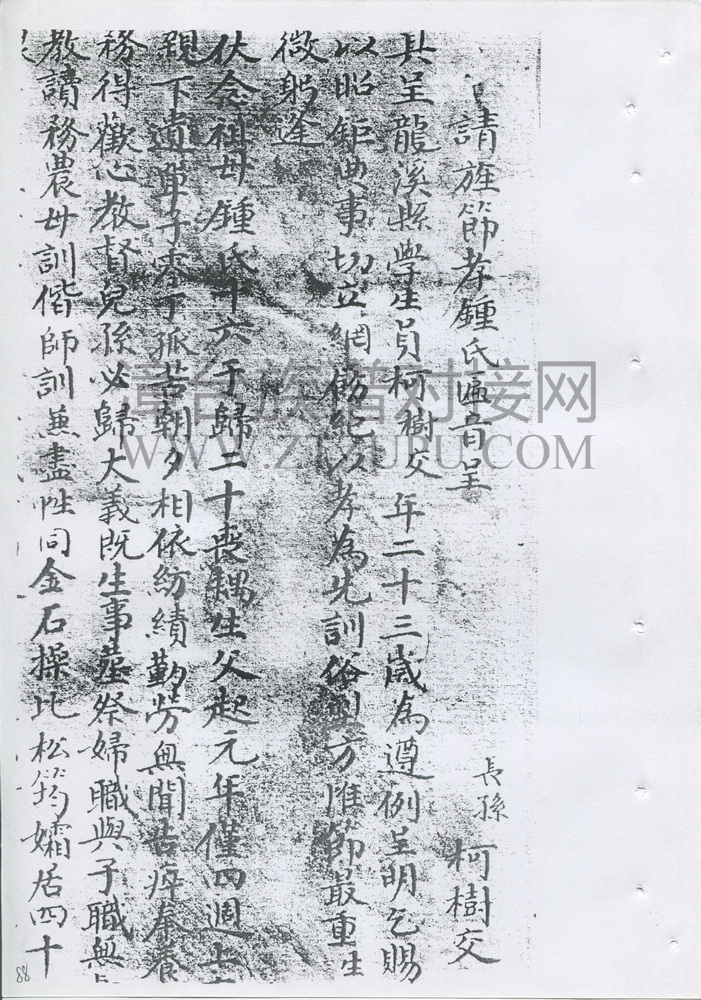 請旌節孝鍾氏匾音呈
長孫 柯樹交
具呈龍溪縣學生員柯樹交年二十三歲為遵例呈明乞賜
以昭鉅典事切立綱飭紀以孝為先訓俗型方惟節最重生
微躬逢
伏念祖母鍾氏十六于歸二十喪耦生父起元年僅四週上
親下遺單子零丁孤苦朝夕相依紡績勤勞無間苦瘁奉養
務得歡心教督兒孫必歸大義既生事葬祭婦職與子職無
教讀務農母訓偕師訓兼盡性同金石操比松筠孀居四十
漳台族譜对接网
WWW.ZTZUPU.COM
88